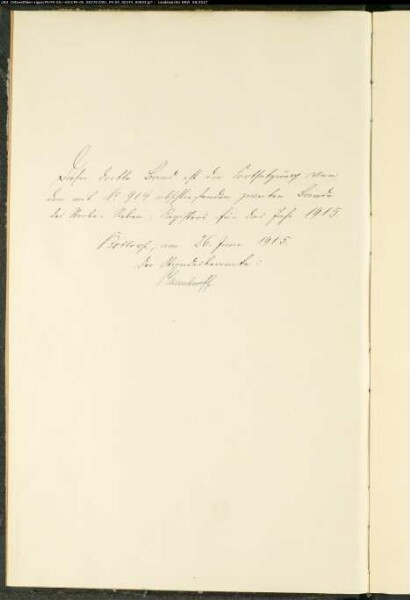 Dieser dritte Band ist die Fortsetzung von
dem mit N. 904 abschließenden zweiten Bande
des Sterbe-Neben-Registers für das Jahr 1915.
am 26. Juni 1915.
Der Standesbeamte: